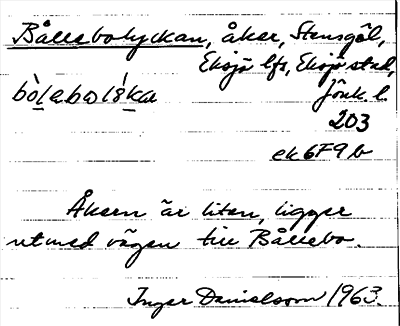 Bållebolyckan, åker, Stensgöl,
Eksjö lfs, Eksjö stad,
bòlabωlýka Jönk. l.
203
ek 6F9b
Åkern är liten, ligger
utmed vägen till Bållebo.
Inger Danielsson 1963.